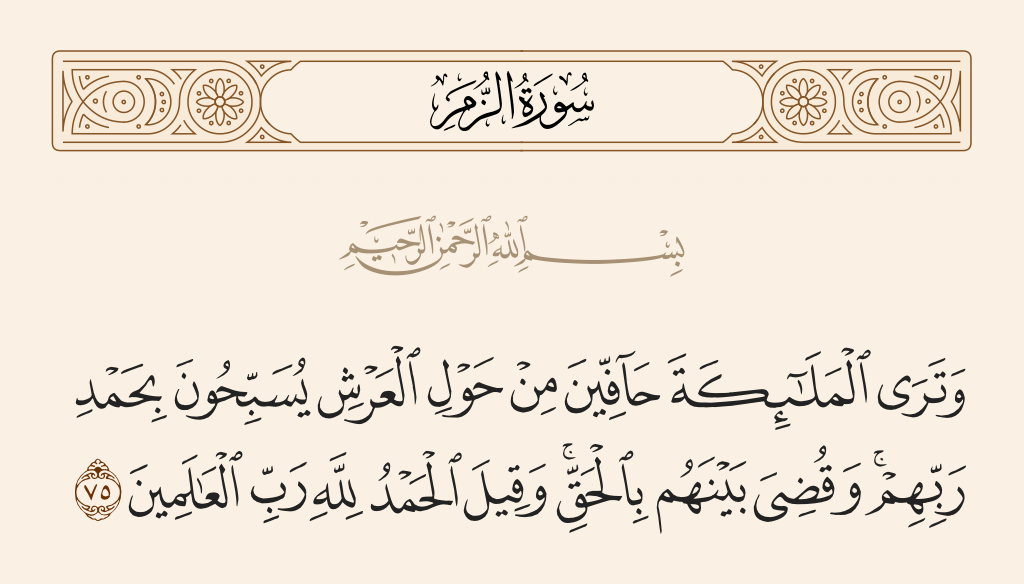 سُورَةُ الزُّمَرِ
بِسْمِ ٱللَّهِ ٱلرَّحْمَٰنِ ٱلرَّحِيمِ
وَتَرَى ٱلْمَلَـٰٓئِكَةَ حَآفِّينَ مِنْ حَوْلِ ٱلْعَرْشِ يُسَبِّحُونَ بِحَمْدِ
رَبِّهِمْ ۚ وَقُضِىَ بَيْنَهُم بِٱلْحَقِّ ۚ وَقِيلَ ٱلْحَمْدُ لِلَّهِ رَبِّ ٱلْعَـٰلَمِينَ ٧٥